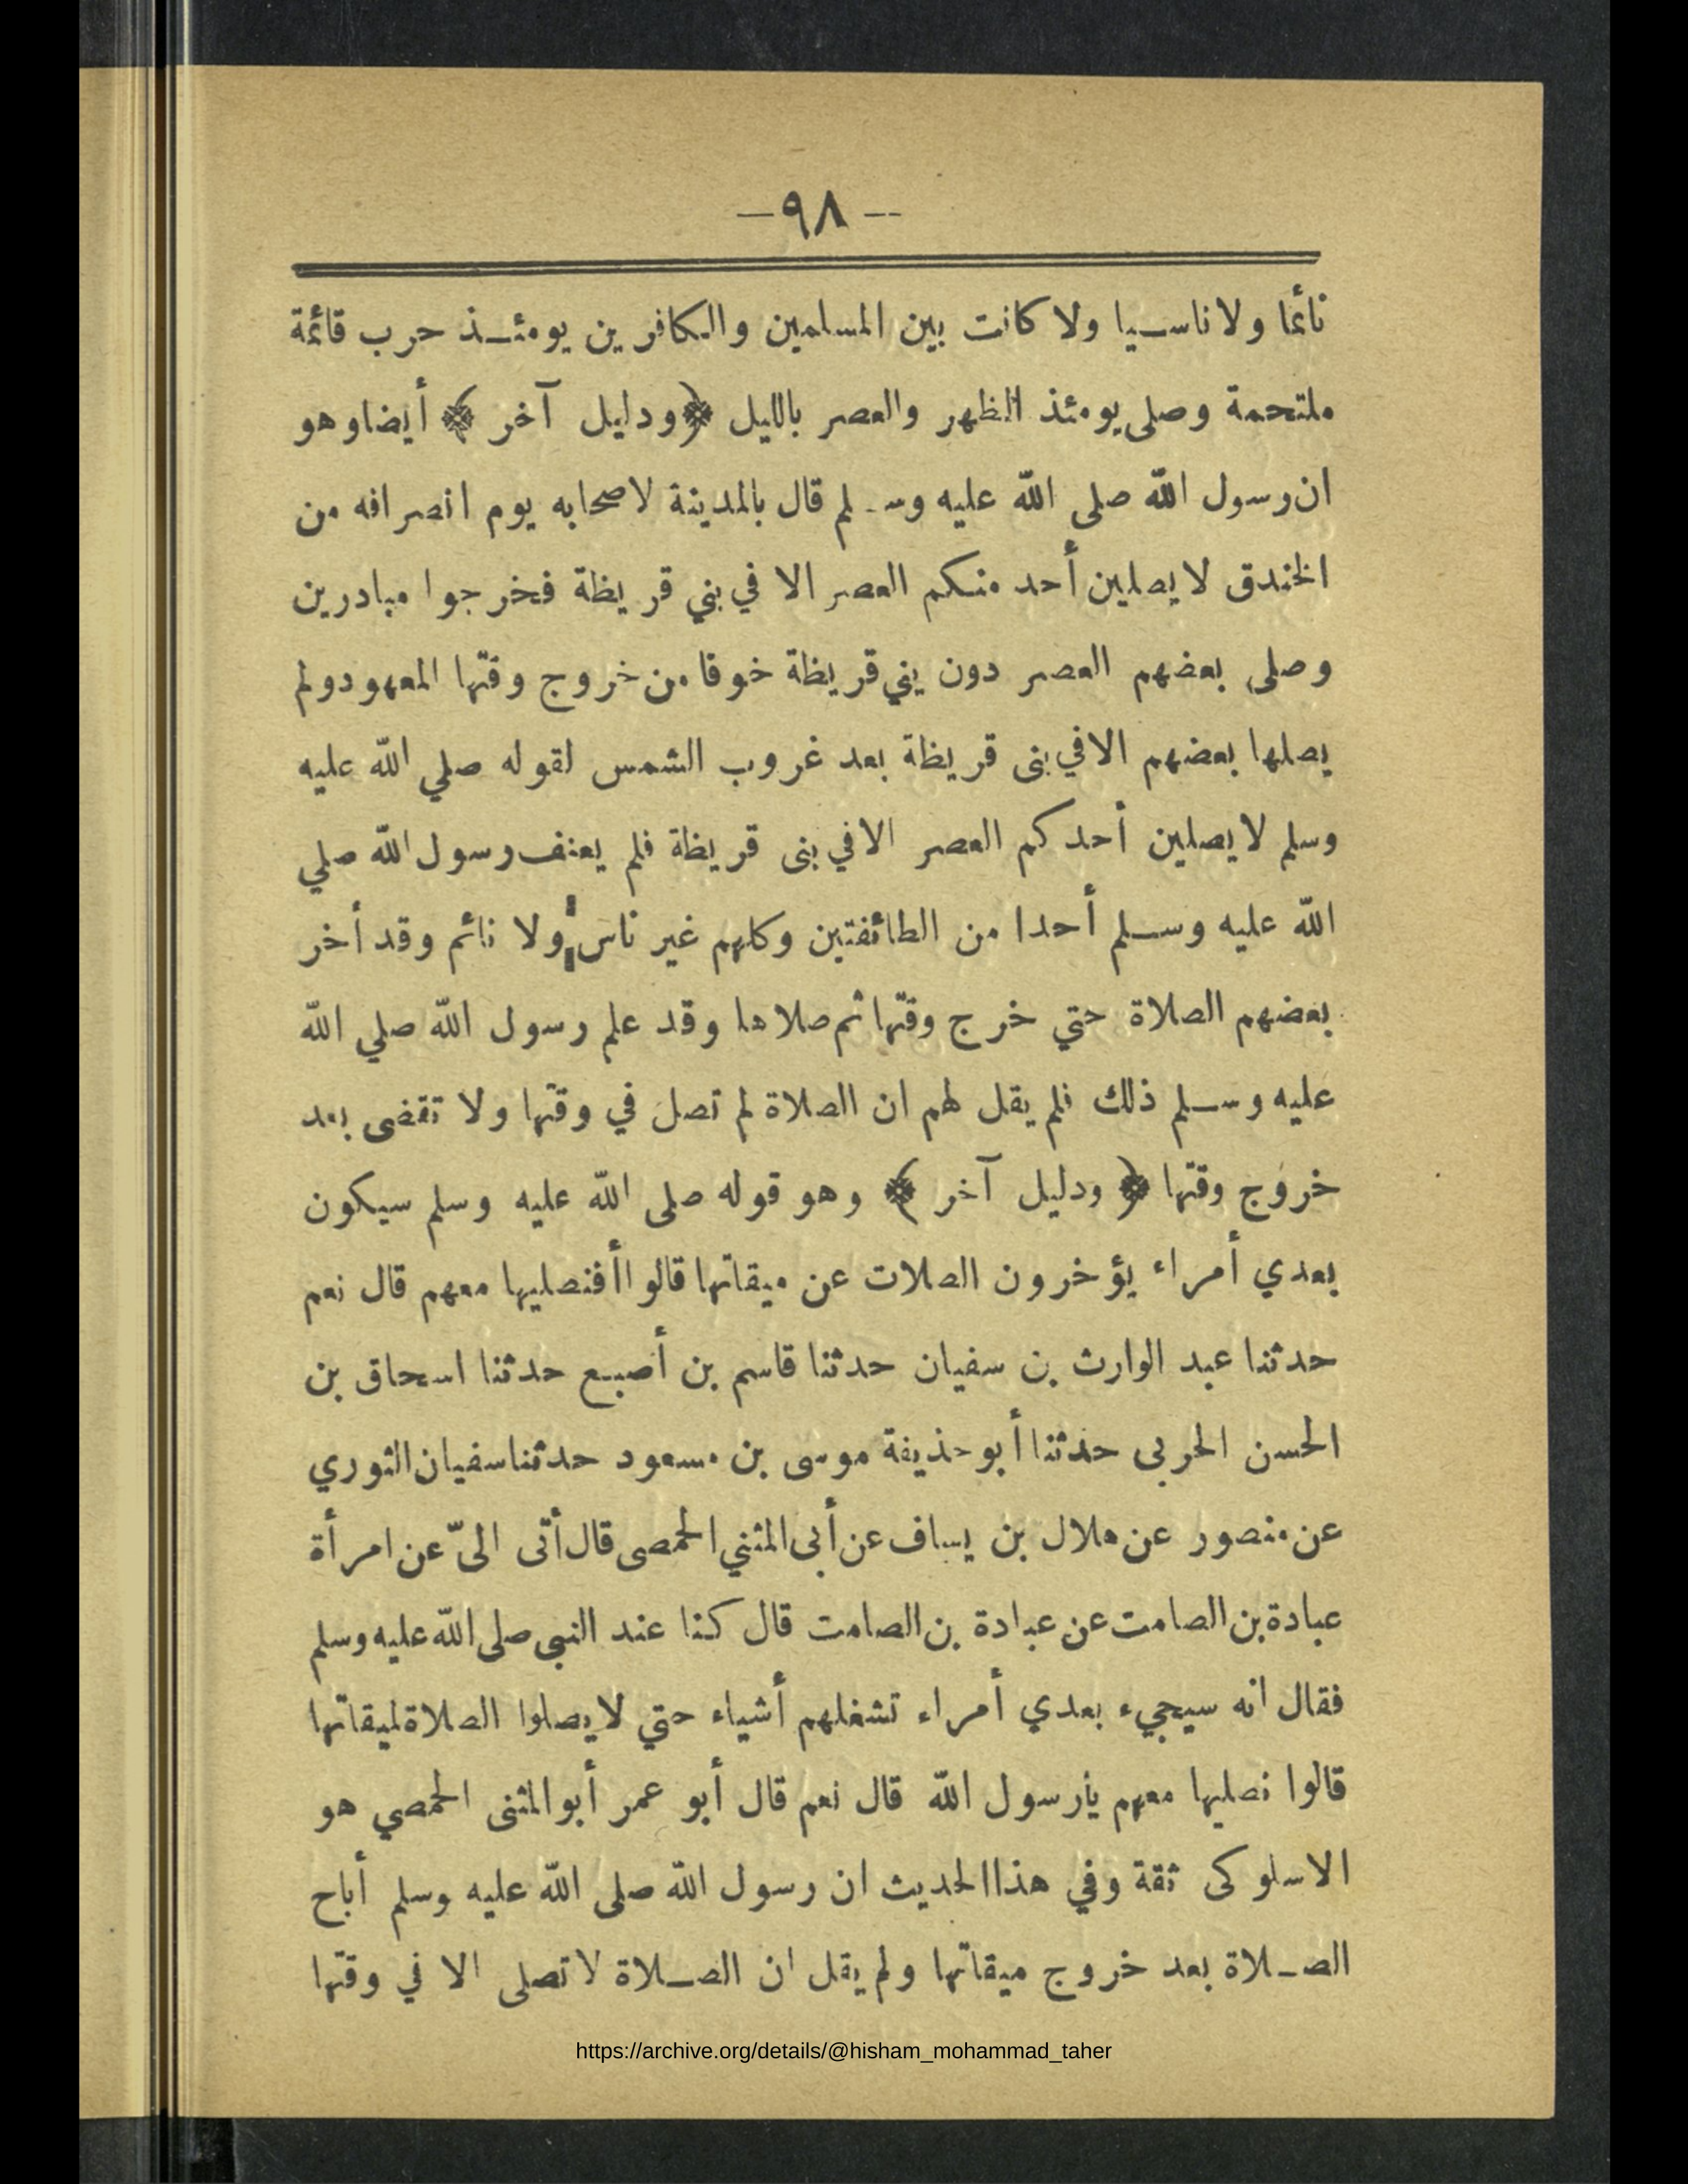 -- ٩٨ —
نائما ولا ناسيا ولا كانت بين المسلمين والكافرين يومئذ حرب قائمة
ملتحمة وصلى يومئذ الظهر والعصر بالليل ﴿ ودليل آخر ﴾ أيضا وهو
ان رسول الله صلى الله عليه وسلم قال بالمدينة لاصحابه يوم انصرافه من
الخندق لا يصلين أحد منكم العصر الا في بني قريظة فخرجوا مبادرين
وصلى بعضهم العصر دون بني قريظة خوفا من خروج وقتها المعهود ولم
يصلها بعضهم الا في بنى قريظة بعد غروب الشمس لقوله صلي الله عليه
وسلم لا يصلين أحدكم العصر الا في بنى قريظة فلم يعنف رسول الله صلي
الله عليه وسلم أحدا من الطائفتين وكلهم غير ناس ولا نائم وقد أخر
بعضهم الصلاة حتي خرج وقتها ثم صلاها وقد علم رسول الله صلي الله
عليه وسلم ذلك فلم يقل لهم ان الصلاة لم تصل في وقتها ولا تقضى بعد
خروج وقتها ﴿ ودليل آخر ﴾ وهو قوله صلى الله عليه وسلم سيكون
بعدي أمراء يؤخرون الصلات عن ميقاتها قالوا أفنصليها معهم قال نعم
حدثنا عبد الوارث بن سفيان حدثنا قاسم بن أصبع حدثنا اسحاق بن
الحسن الحربى حدثنا أبو حذيفة موسى بن مسعود حدثنا سفيان الثوري
عن منصور عن هلال بن يساف عن أبى المثني الحمصى قال أتى الىّ عن امرأة
عبادة بن الصامت عن عبادة بن الصامت قال كنا عند النبى صلى الله عليه وسلم
فقال انه سيجيء بعدي أمراء تشغلهم أشياء حتي لا يصلوا الصلاة لميقاتها
قالوا نصليها معهم يأرسول الله قال نعم قال أبو عمر أبو المثنى الحمصي هو
الاسلوكى ثقة وفي هذا الحديث ان رسول الله صلى الله عليه وسلم أباح
الصلاة بعد خروج ميقاتها ولم يقل ان الصلاة لا تصلى الا في وقتها
https://archive.org/details/@hisham_mohammad_taher